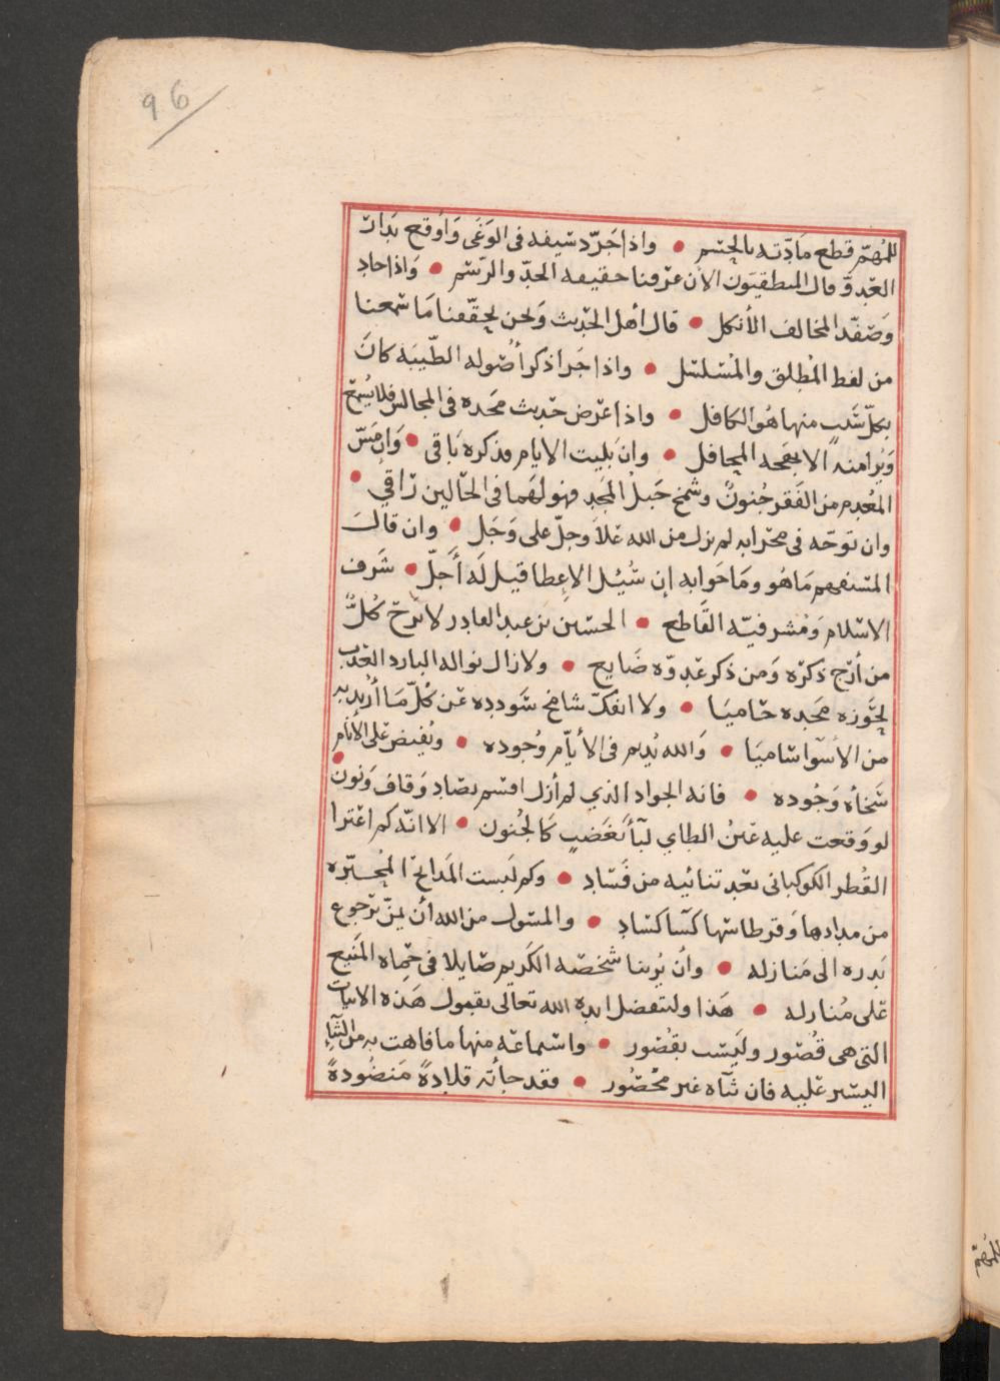 96
للمُهِمّ قطع مَادّته بالجسْم • واذا جَرّد سَيفه فى الوَغَى وَاوقع بَدات
العَدوّ قال المنطقيّون الآن عرَفنا حقيقه الحدّ والرّسْم • وَاذا حادِ
وَصَفّد المخالف الأنكل • قال اهْل الحَديث وَنحن يحقّقنا مَا سَمعنا
من لفظ المُطلق والمُسَلسَل • واذا جَرا ذكر أُصُوله الطّيبَه كانَ
بكلّ نسَبٍ منها هُو الكافل • واذا عَرض حَديث مَجده فى المجالس فلا يُسمَع
وَيُرا منه الا بهجه المحافل • وان بَليت الايام فذكره بَاقى • وَان مَسّ
المعْدِم من الفَقر جُنونٌ وشمخ جَبلُ المَجد فهو لهَما فى الحَالين رَاقي •
وان توجّه فى محرَابه لم يزل من الله عَلاَ وجلّ على وَجَل • وان قالَ
المسَتفهم مَا هُو ومَا جَوابه إن سُئِل الاعطا قيل لَه أَجَلّ • شرَف
الاسْلام وَمُشرفيّه القَاطع • الحسَين بن عبد القادر لا بَرحَ كُلٌّ
من أرَج ذكرَه وَمن ذكر عَدوّه ضَايع • ولا زال نواله البارد العَذب
لحَوزه مَجده حَاميَا • ولا انفكّ شامخ سَودده عَن كُلّ مَا أُريد به
من الاسَوا سَاميَا • وَالله يُديم فى الأيّام وُجوده • ويُفيض عَلى الأنام
سَخاه وَجُوده • فانه الجواد الذي لم أزل اقسم بصَادِ وَقاف وَنون
لو وَقعت عليه عَينُ الطاي لبآ بغَضبٍ كَالجُنون • الا انّه كم اعْترا
القُطر الكوكبانى بَعْد تنائيه من فَسَادِ • وكم لَبست المَدائح المحبّره
من مدادهَا وَقرطاسها كسَا كسَادِ • والمسَول من الله أن يمنّ برَجوع
بَدره الى مَنازله • وَان يُرينا شخصَه الكَريم صَايلا فى حِمَاه المَنيع
عَلى مُنازله • هَذا وليتفضل ايده الله تعالى بقبول هَذه الابيات
التى هى قصُور وليسَت بقُصُور • واسْماعَه منها ما فاهت به من الثنآ
اليسَير عَليه فان ثنَاه غير محْصُور • فقد جاءته قلادةً مَنضُودةً
للمهم